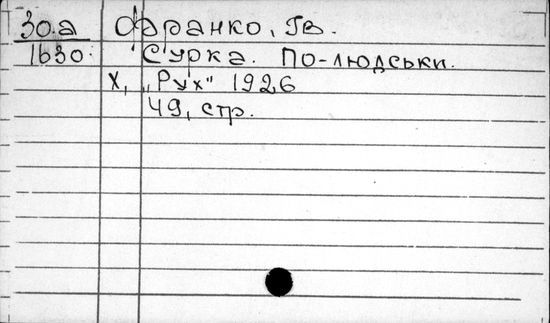 30.а Франко, Ів.
1630. Сурка. По-людськи.
Х, „Рух" 1926
49, стр.